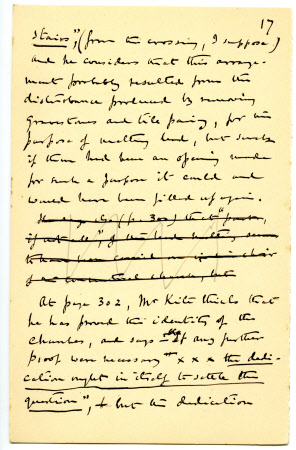 17
stairs", (from the crossing, I suppose)
and he considers that this arrange-
ment probably resulted from the
disturbance produced by removing
gravestones and tile paving, for the
purpose of melting lead, but surely
if there had been an opening made
for such a purpose it could and
would have been filled up again.
(p. 302) that
if not all", of the lead
to have been carried on
but
At page 302, Mr Kite thinks that
he has proved the identity of the
Churches, and says "If any further
proof were necessary x x x the dedi-
cation ought in itself to settle the
question", but the dedication